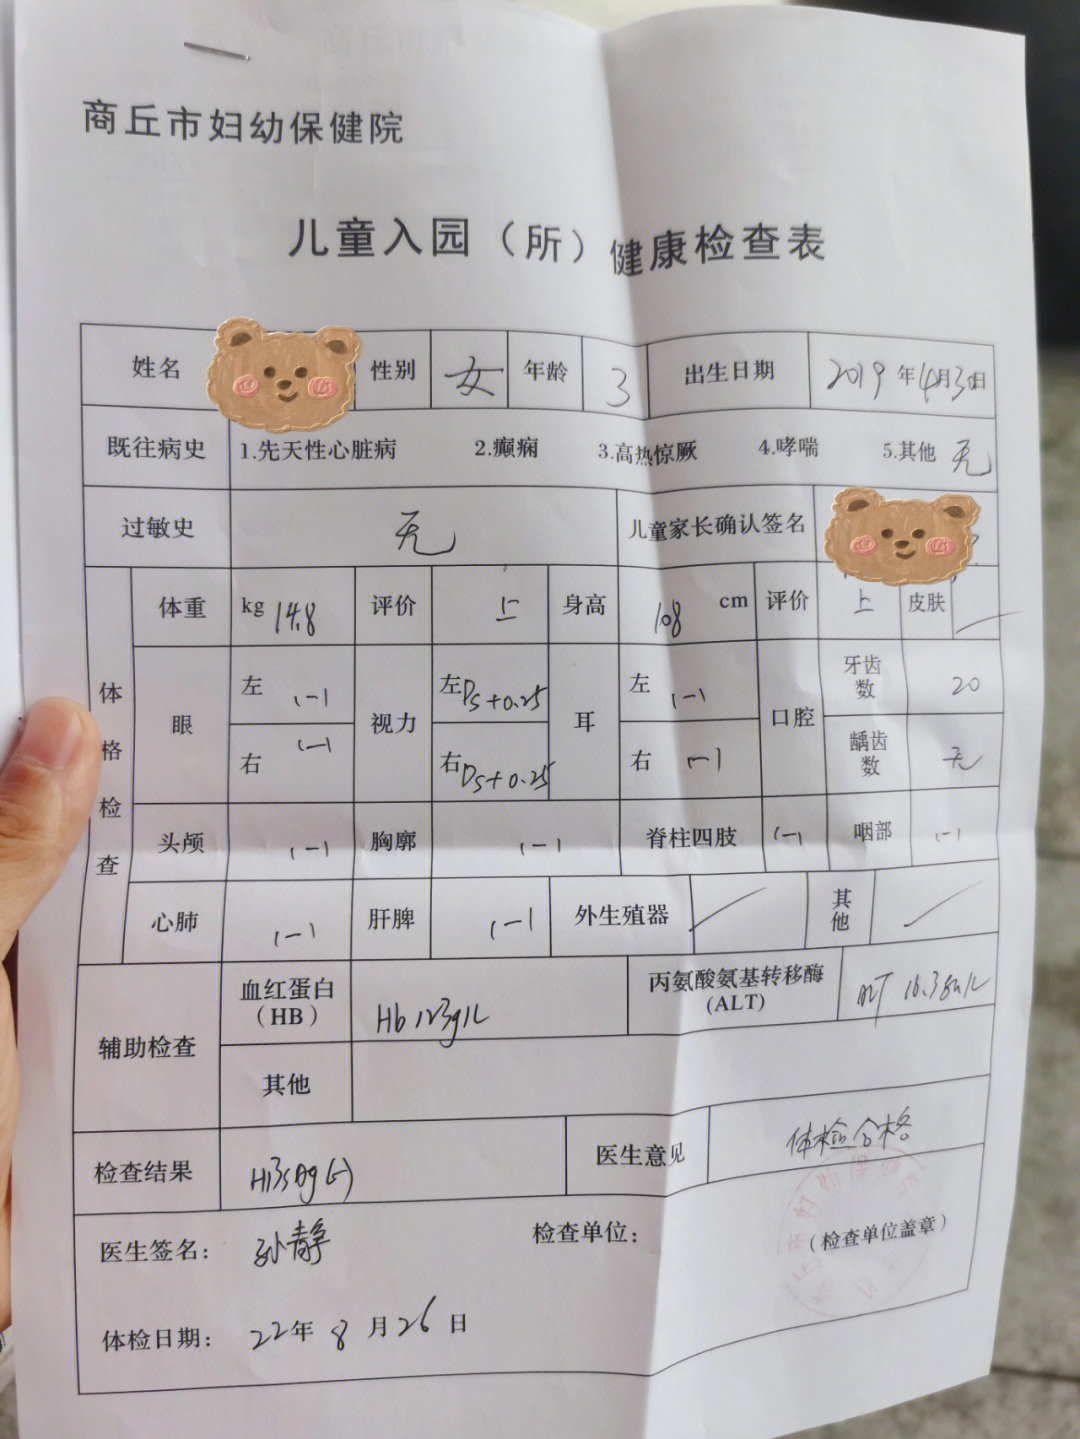 商丘市妇幼保健院
儿童入园（所）健康检查表
姓名 性别 女 年龄 3 出生日期 2019年4月30日
既往病史 1.先天性心脏病 2.癫痫 3.高热惊厥 4.哮喘 5.其他 无
过敏史 无 儿童家长确认签名
体格检查
体重 kg 14.8 评价 上 身高 108 cm 评价 上 皮肤
眼 左 (-) 视力 左 Ds+0.25 耳 左 (-) 口腔 牙齿数 20
右 (-) 右 Ds+0.25 右 (-) 龋齿数 无
头颅 (-) 胸廓 (-) 脊柱四肢 (-) 咽部 (-)
心肺 (-) 肝脾 (-) 外生殖器 其他
辅助检查 血红蛋白（HB） Hb 123g/L 丙氨酸氨基转移酶(ALT) ALT 16.38u/L
其他
检查结果 HBsAg(-) 医生意见 体检合格
医生签名： 孙静 检查单位： （检查单位盖章）
体检日期： 22年 8 月 26 日